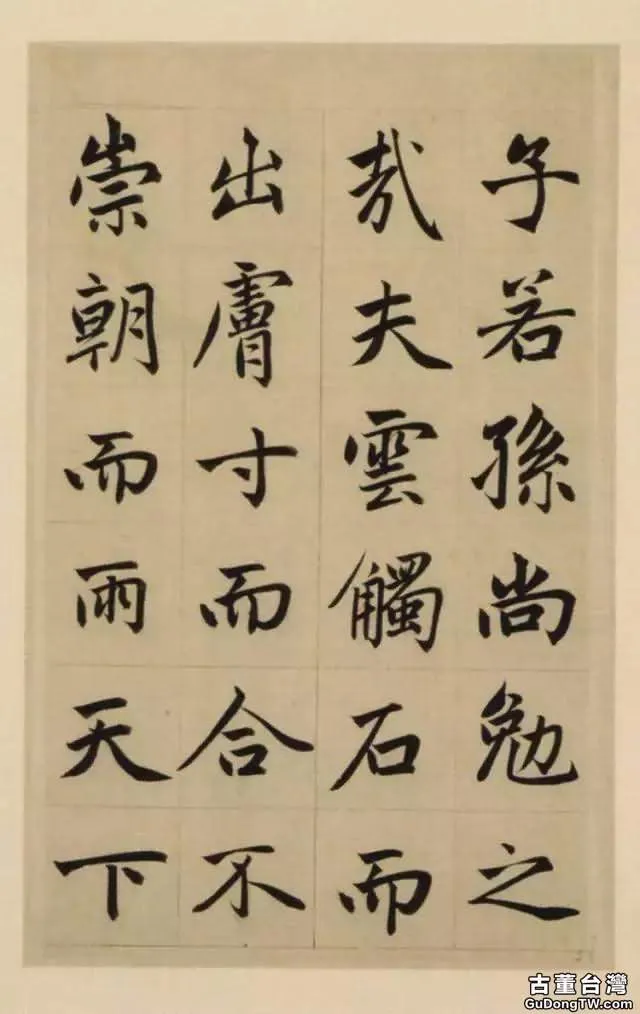 子若孫尚勉之
哉夫雲觸石而
出膚寸而合不
崇朝而雨天下
古董台灣
GuDongTW.com